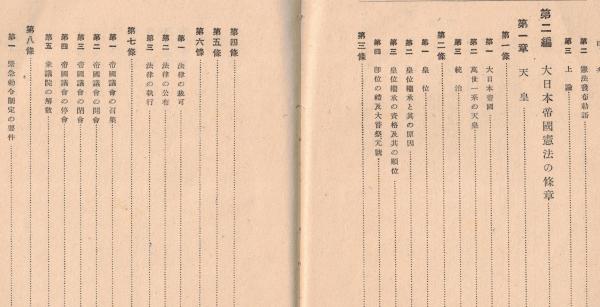 第二 憲法發布勅語
第三 上諭
第二編 大日本帝國憲法の條章
第一章 天皇
第一條
第一 大日本帝國
第二 萬世一系の天皇
第三 統治
第二條
第一 皇位
第二 皇位繼承と其の原因
第三 皇位繼承の資格及其の順位
第四 卽位の禮及大嘗祭元號
第三條
第四條
第五條
第六條
第一 法律の裁可
第二 法律の公布
第三 法律の執行
第七條
第一 帝國議會の召集
第二 帝國議會の開會
第三 帝國議會の閉會
第四 帝國議會の停會
第五 衆議院の解散
第八條
第一 緊急勅令制定の要件